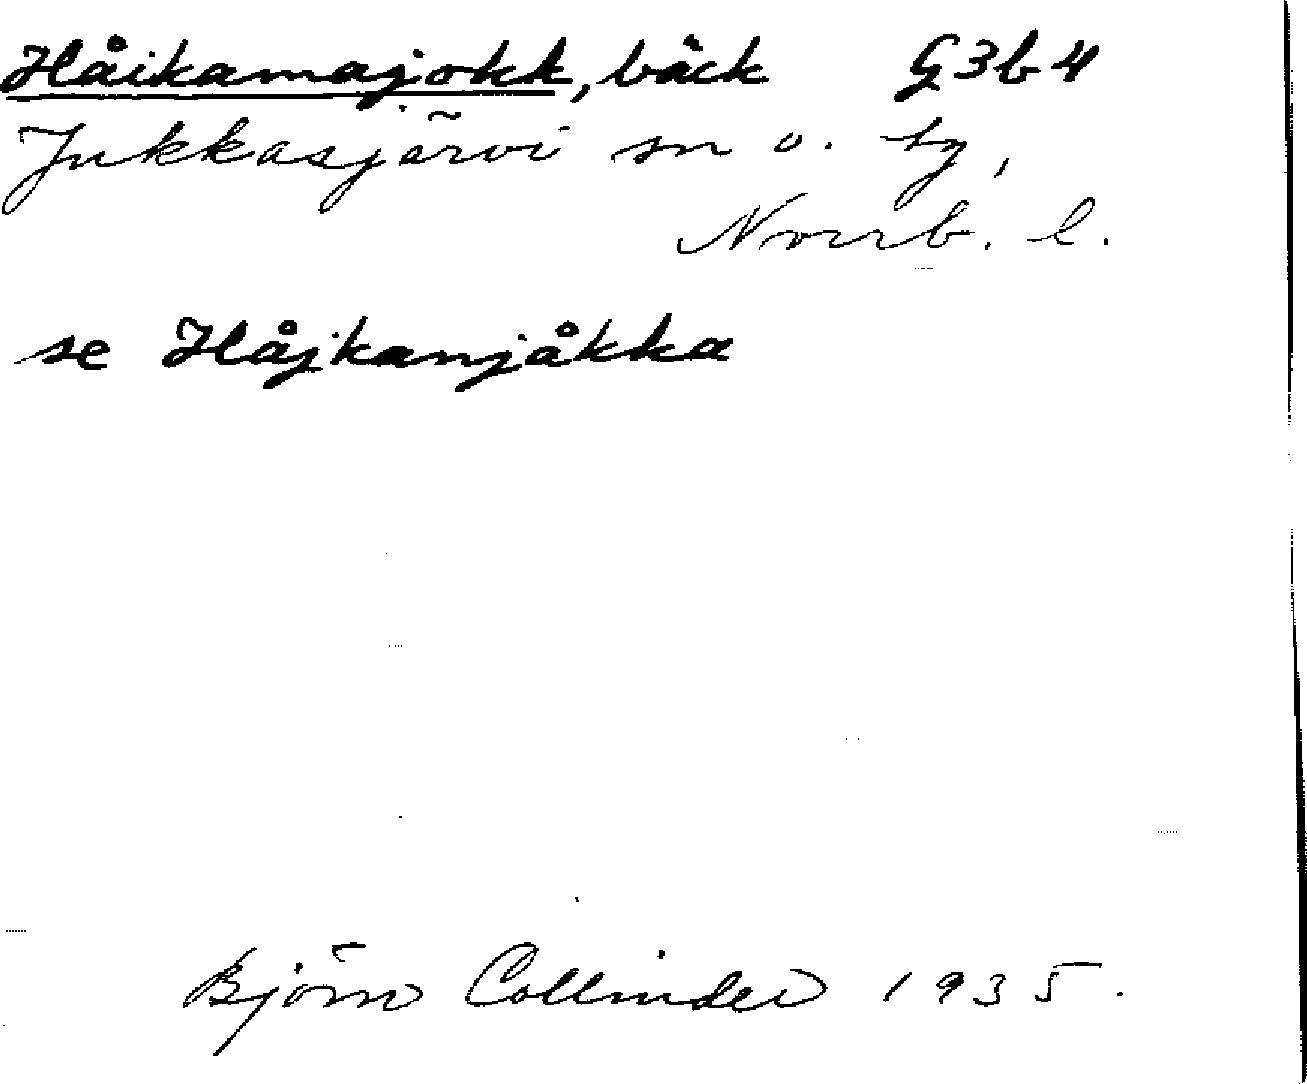 Håikamajokk, bäck G3b4
Jukkasjärvi sn o. tg,
Norrb. l.
se Håjkanjåkka
Björn Collinder 1935.